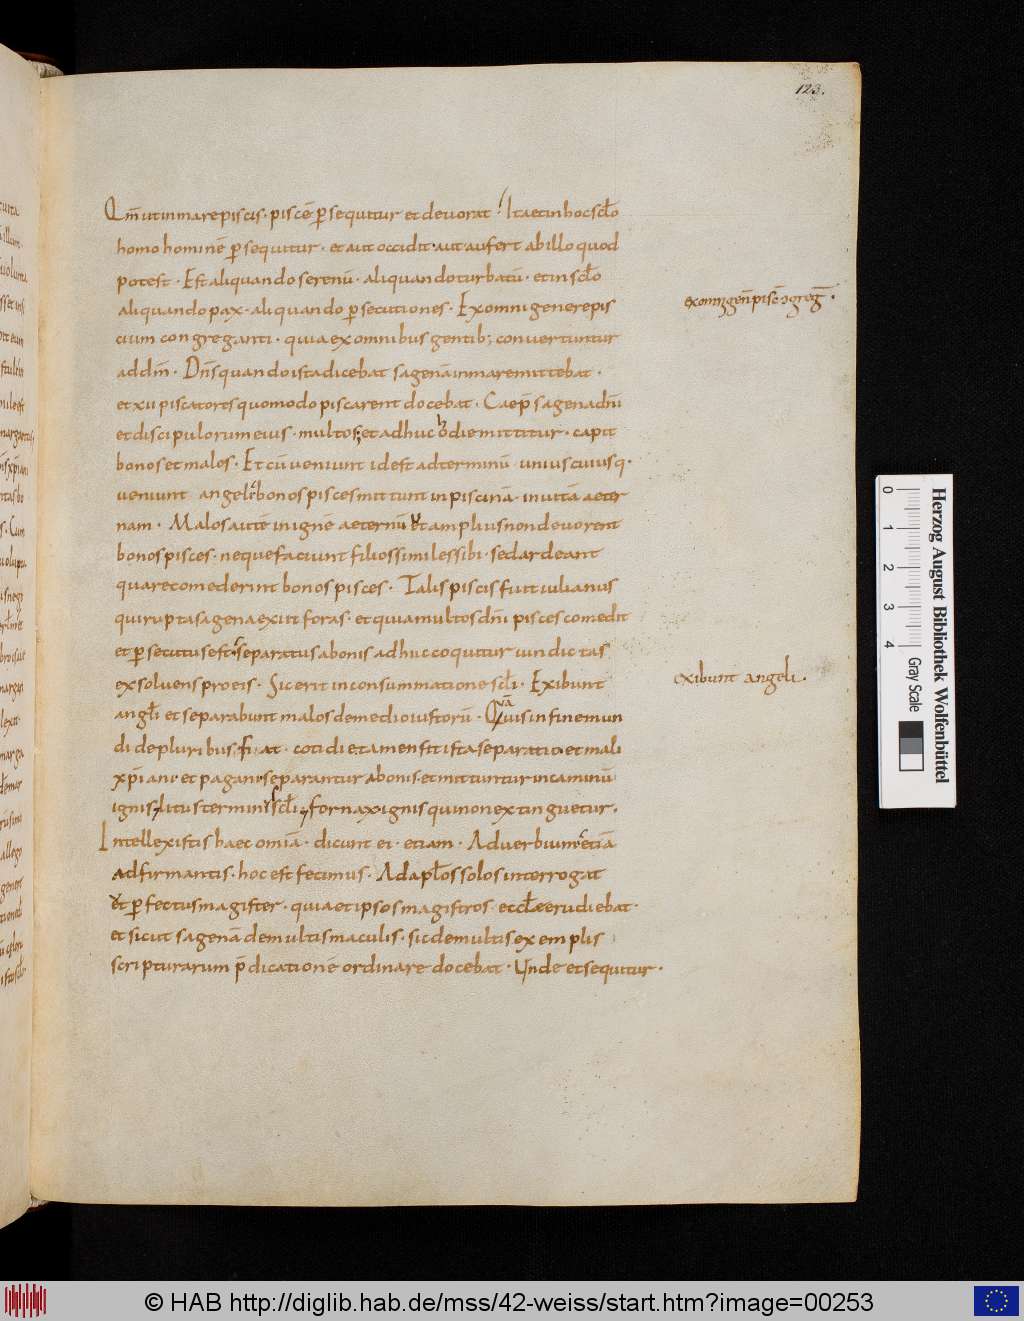 123.
Qm̅ ut in mare piscis · piscē ꝑsequitur et devorat · Ita et in hoc scl̅o
homo hominē ꝑsequitur · et aut occidit · aut aufert ab illo quod
potest · Est aliquando serenū · aliquando turbatū · et in scl̅o
aliquando pax · aliquando ꝑsecutiones · Ex omni genere pis
cium congreganti · quia ex omnibus gentib; convertuntur
ad dm̅ · Dn̅s quando ista dicebat sagenā in mare mittebat ·
et xii piscatores quomodo piscarent docebat · Caep̅ sagena dn̅i
et discipulorum eius · multos; et adhuc hodie mittitur · capit
bonos et malos · Et cū veniunt id est ad terminū uniuscuiusq·
veniunt angeli bonos pisces mittunt in piscinā · in vitā aeter
nam · Malos autē in ignē aeternū ut amplius non devorent
bonos pisces · neque faciunt filios similes sibi · sed ardeant
quare comederint bonos pisces · Talis piscis fuit iulianus
qui rupta sagena exiit foras · et quia multos dn̅i pisces comedit
et ꝑsecutus est · separatus a bonis adhuc coquitur vindictas
exsolvens pro eis · Sic erit in consummatione scl̅i · Exibunt
angl̅i et separabunt malos de medio iustorū · Quāvis in fine mun
di de pluribus fiat · cotidie tamen fit ista separatio et mali
xp̅iani · et pagani separantur a bonis et mittuntur in caminū
ignis fornax ignis qui non extinguetur ·
Intellexistis haec omiā · dicunt ei · etiam · Adverbium etiā
adfirmantis · hoc est fecimus · Ad apl̅os solos interrogat
ut ꝑfectus magister · quia et ipsos magistros eccl̅e erudiebat ·
et sicut sagenā de multis maculis · sic de multis exemplis
scripturarum p̅dicationē ordinare docebat · Unde et sequitur ·
exibunt angeli ·
Herzog August Bibliothek Wolfenbüttel
0 1 2 3 4 Gray Scale
© HAB http://diglib.hab.de/mss/42-weiss/start.htm?image=00253